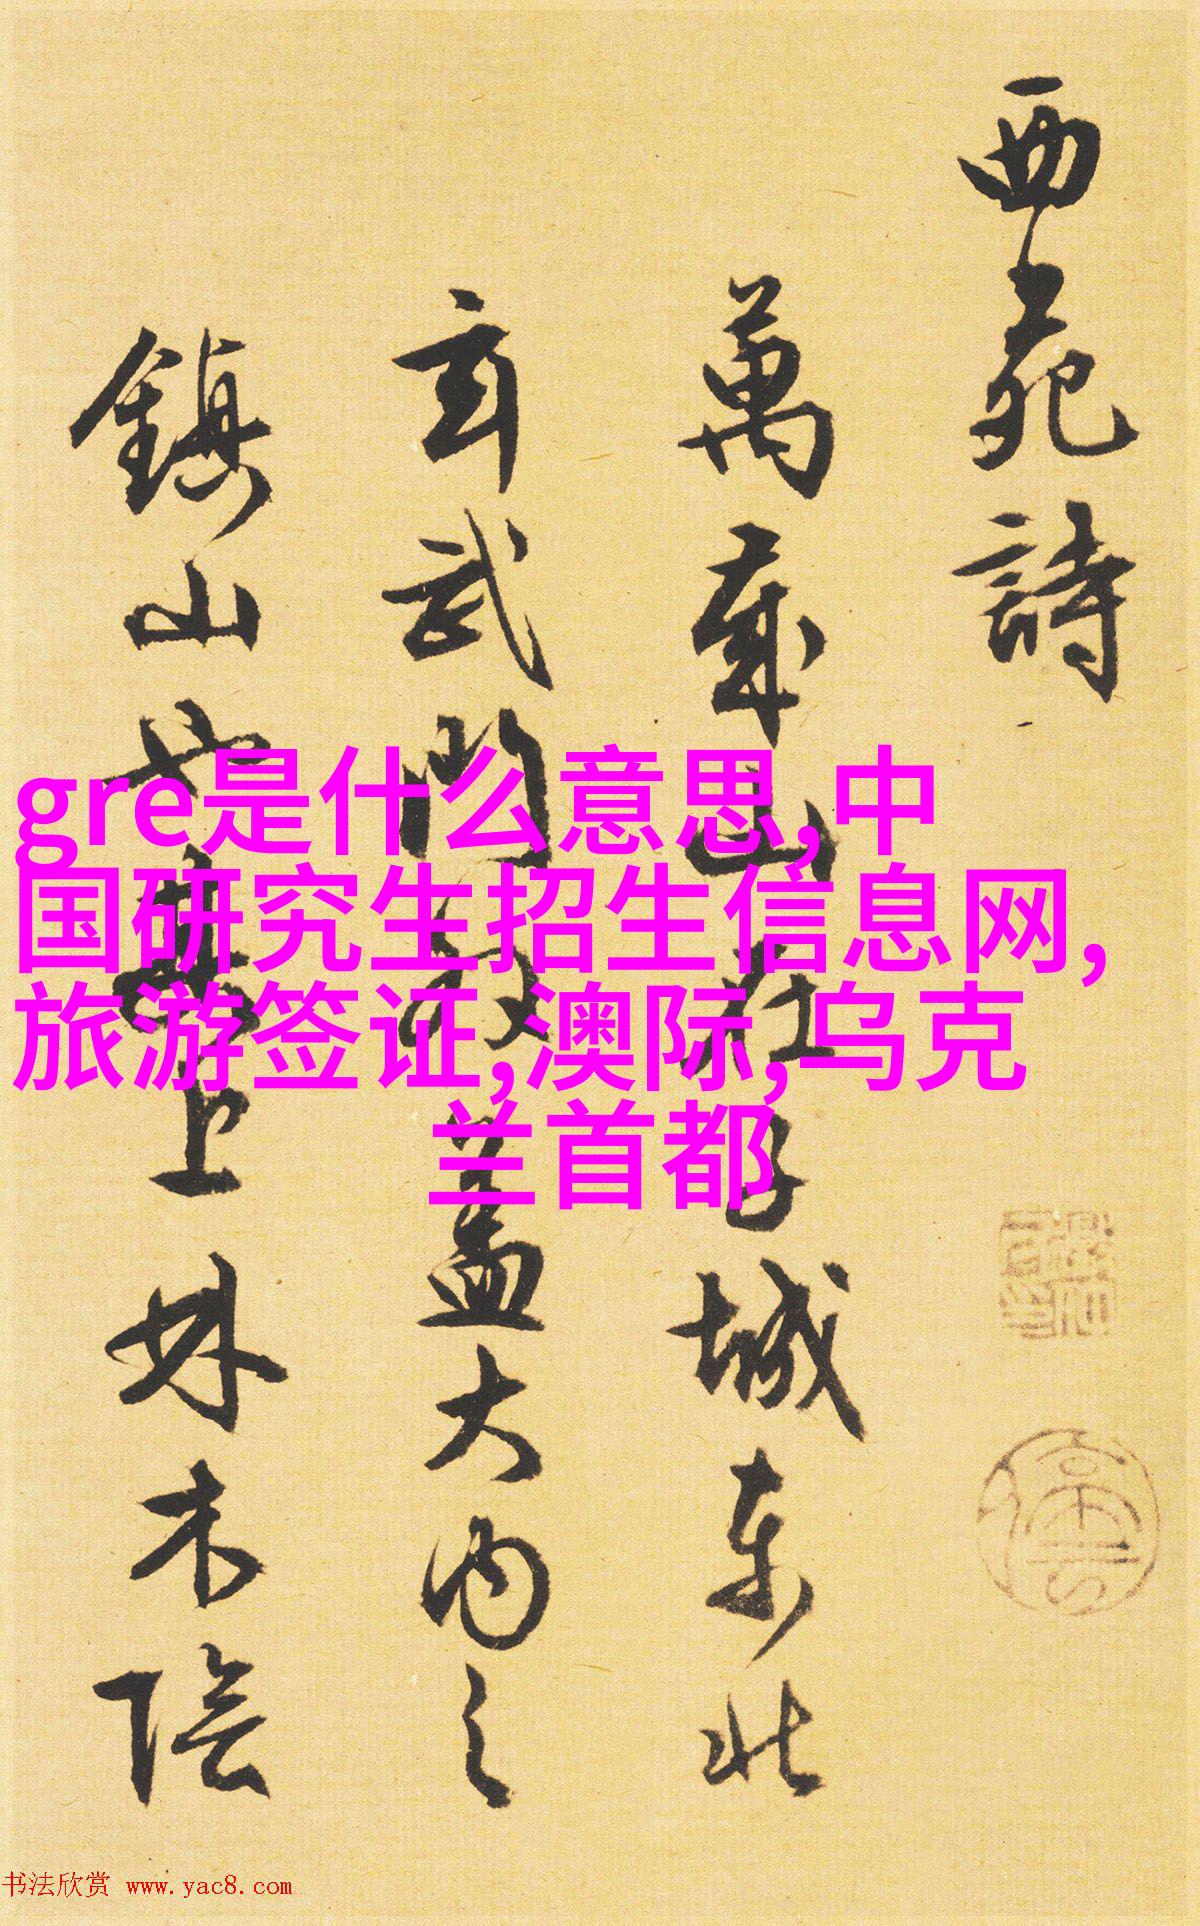 西苑詩
萬歲山在子城東北
玄武門外蓋大內之
鎮山也其上林木陰
gre是什么意思,中
国研究生招生信息网,
旅游签证,澳际,乌克
兰首都
书法欣赏 www.yac8.com